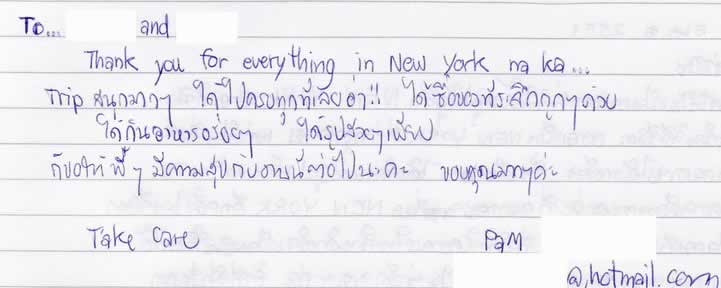 To... and
Thank you for everything in New York na ka...
Trip สนุกมากๆ ได้ไปครบทุกที่เลยอ่า!! ได้ซื้อของที่ระลึกถูกๆด้วย
ได้กินอาหารอร่อยๆ ได้รูปสวยๆเพียบ
ก็ขอให้พี่ๆ มีความสุขกับงานนี้ต่อไปนะคะ ขอบคุณมากๆค่ะ
Take Care Pam
@hotmail.com